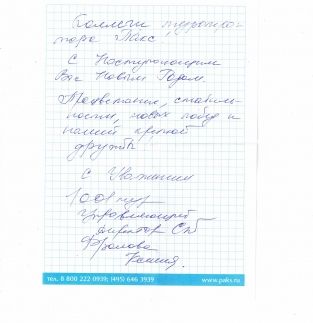 Коллеги туропера-
тора Пакс,
С Наступающим
Вас Новым Годом.
Процветания, стабиль-
ности, новых побед и
нашей крепкой
дружбы!
С Уважением
1001 тур
Управляющий
директор СПб
Фролова
Ксения.
тел. 8 800 222 0939; (495) 646 3939
www.paks.ru